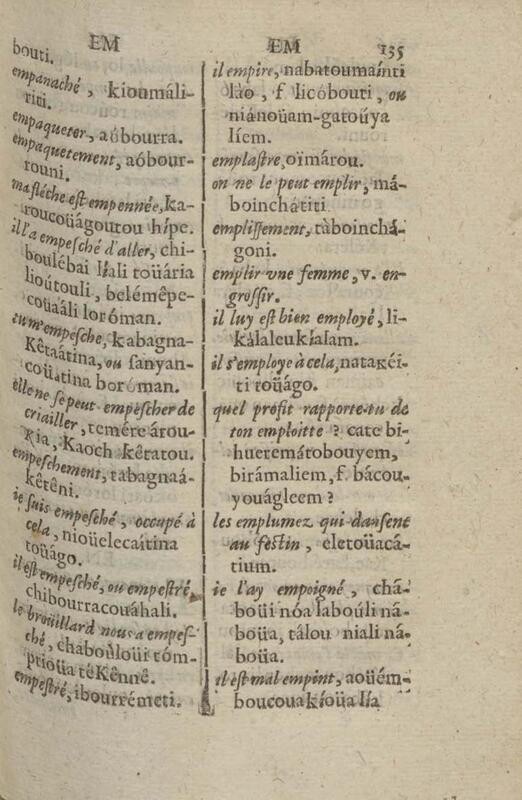 EM
bouti.
empanaché, kioumáli-
ritι.
empaqueter, aóbourra.
empaquetement, aóbour-
rouni.
ma fléche est empennée, ka-
roucoüágoutou hípe.
il l'a empesché d'aller, chi-
boulébai líali touária
lioútouli, belémêpe-
coüaáli loróman.
tu m'empesche, kabagna-
Kêtaátina, ou sanyan-
coüatina boróman.
elle ne se peut empescher de
criailler, temére árou-
Kia, Kaoch kêratou.
empeschement, tabagnaá-
kêtêni.
ie suis empesché, occupé à
cela, nioüelecaítina
toüágo.
il est empesché, ou empestré,
chibourracouáhali.
le broüillard nous a empes-
ché, chaboùloüi tóm-
ptioüa téKênnê.
empestré, ibourrémeti.
EM 135
il empire, nabatoumaínti
láo, f. licóbouti, ou
niánoüam-gatoúya
líem.
emplastre, oïmárou.
on ne le peut emplir, má-
boinchátiti.
emplissement, tàboinchá-
goni.
emplir vne femme, v. en-
grossir.
il luy est bien employé, li-
kálaleukíaſam.
il s'employe à cela, nataкéi-
ti toüágo.
quel profit rapporte-tu de
ton emploitte ? cate bi-
hueremátobouyem,
birámaliem, f. bácou-
youágleem ?
les emplumez qui dansent
au festin, eletoüacá-
tium.
ie l'ay empoigné, chá-
boüi nóa ſaboúli ná-
boüa, tálou niali ná-
boüa.
il est mal empint, aoüém-
boucouakíoüa lía